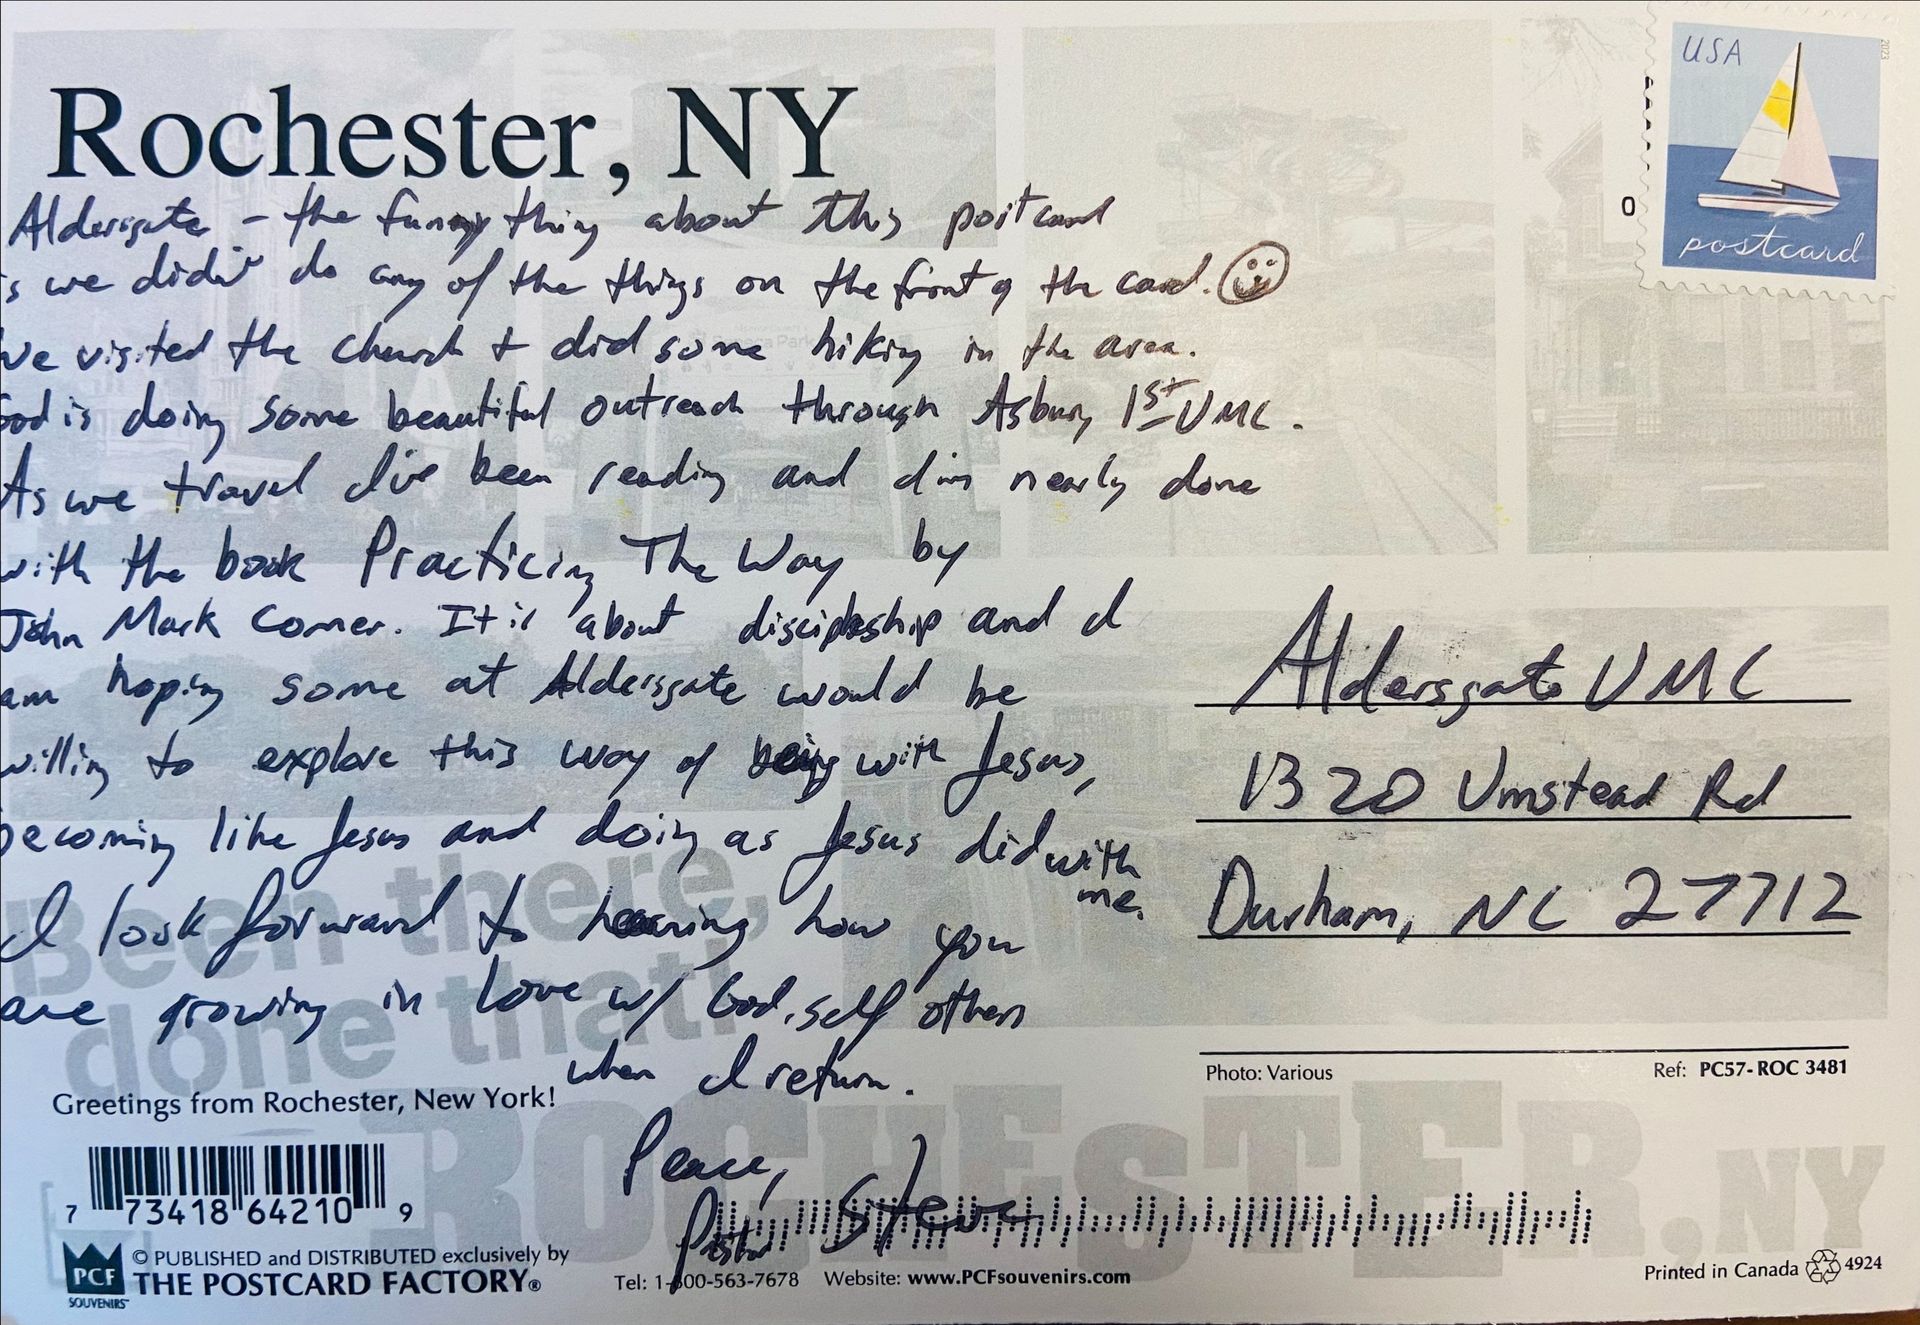 Rochester, NY
USA
2023
0
postcard
Aldersgate – the funny thing about this postcard
is we didn't do any of the things on the front of the card.
We visited the church + did some hiking in the area.
God is doing some beautiful outreach through Asbury 1st UMC.
As we travel I've been reading and I'm nearly done
with the book Practicing The Way by
John Mark Comer. It is about discipleship and I
am hoping some at Aldersgate would be
willing to explore this way of being with Jesus,
becoming like Jesus and doing as Jesus did with
me.
I look forward to hearing how you
are growing in love w/ God, self others
when I return.
Peace,
Pastor Steve
Aldersgate UMC
1320 Umstead Rd
Durham, NC 27712
Been there,
done that!
ROCHESTER.NY
Photo: Various
Ref: PC57-ROC 3481
Greetings from Rochester, New York!
7 73418 64210 9
PCF
SOUVENIRS™
© PUBLISHED and DISTRIBUTED exclusively by
THE POSTCARD FACTORY®
Tel: 1-800-563-7678 Website: www.PCFsouvenirs.com
Printed in Canada 4924